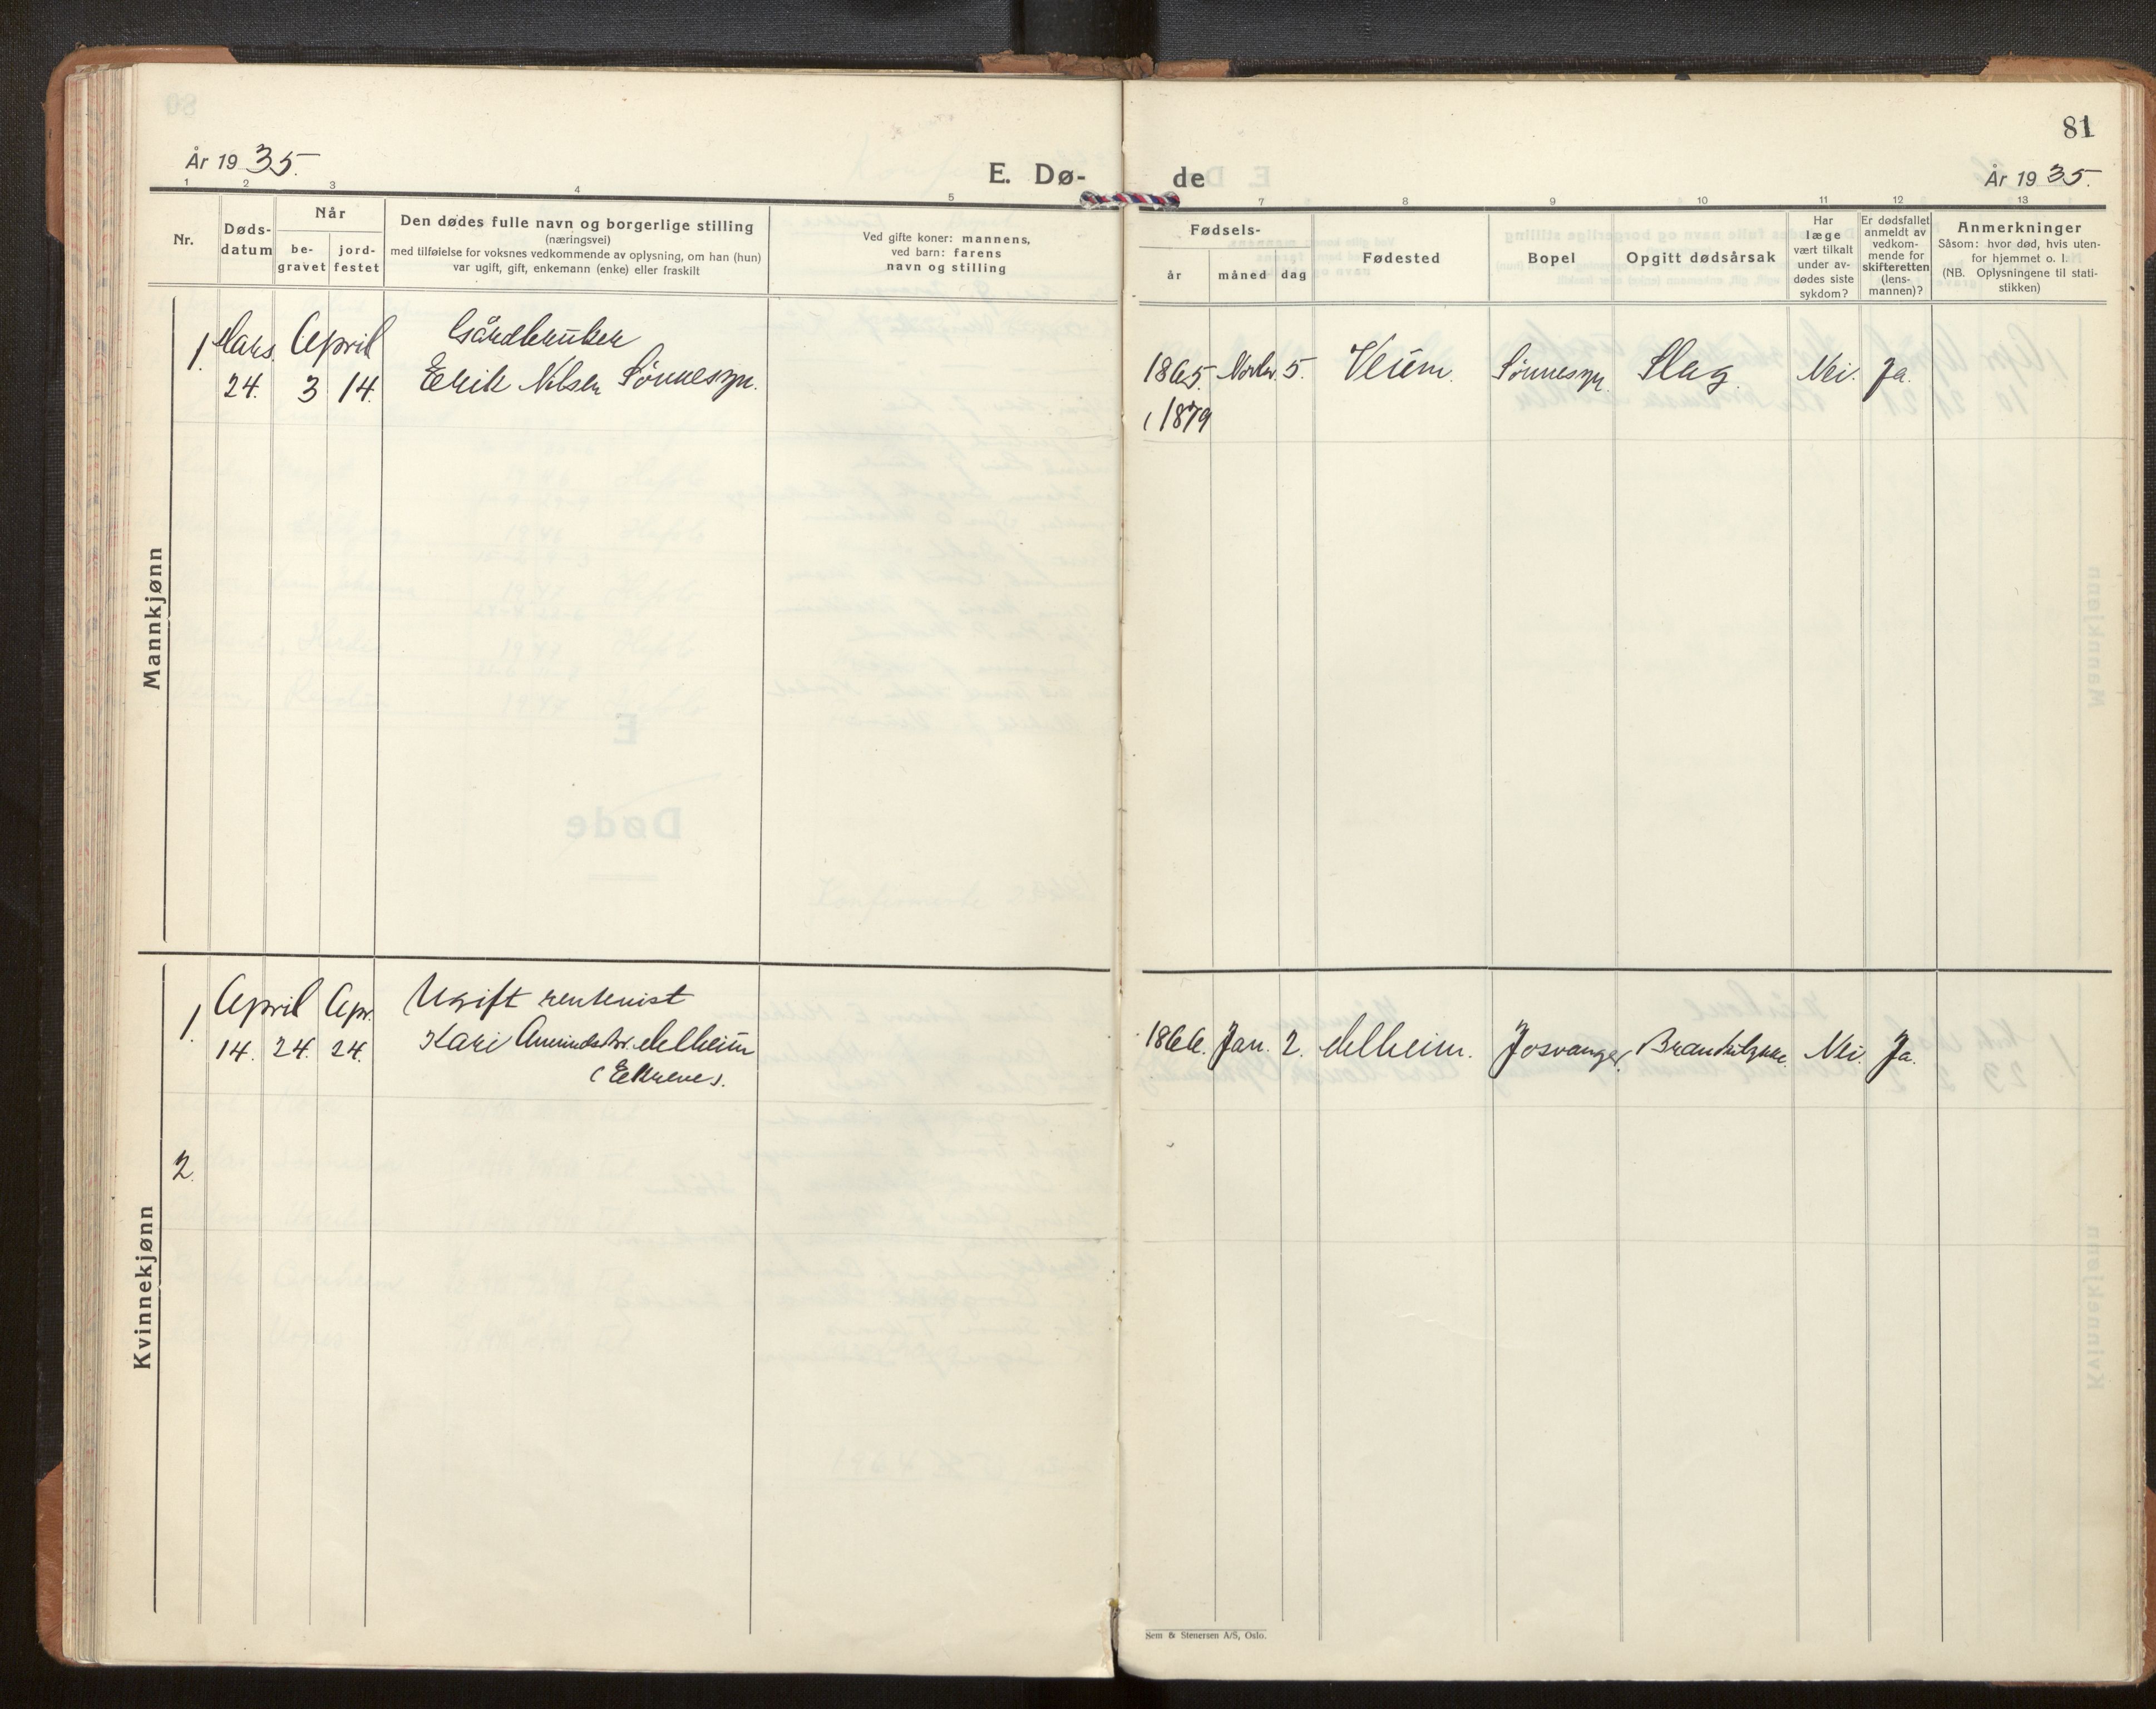 81
År 1935.
E. Dø-
de
År 1935.
1 2 3 4 5
7 8 9 10 11 12 13
Nr.
Døds-
datum
Når
be-
gravet
jord-
festet
Den dødes fulle navn og borgerlige stilling
(næringsvei)
med tilføielse for voksnes vedkommende av oplysning, om han (hun)
var ugift, gift, enkemann (enke) eller fraskilt
Ved gifte koner: mannens,
ved barn: farens
navn og stilling
Fødsels-
år
måned
dag
Fødested
Bopel
Opgitt dødsårsak
Har
læge
vært tilkalt
under av-
dødes siste
sykdom?
Er dødsfallet
anmeldt av
vedkom-
mende for
skifteretten
(lens-
mannen)?
Anmerkninger
Såsom: hvor død, hvis uten-
for hjemmet o. l.
(NB. Oplysningene til stati-
stikken)
Mannkjønn
1 Mars April Gårdbruker
24. 3 14. Eerik Nilsen Sønnesyn.
1865. Novbr. 5. Veum. Sønnesyn. Slag. Nei. Ja.
(1879
Kvinnekjønn
1. April Apr. Ugift rentenist
14. 24. 24. Kari
(Eekrene).
1866. Jan. 2. Josvanger. Nei. Ja.
2.
Sem & Stenersen A/S, Oslo.